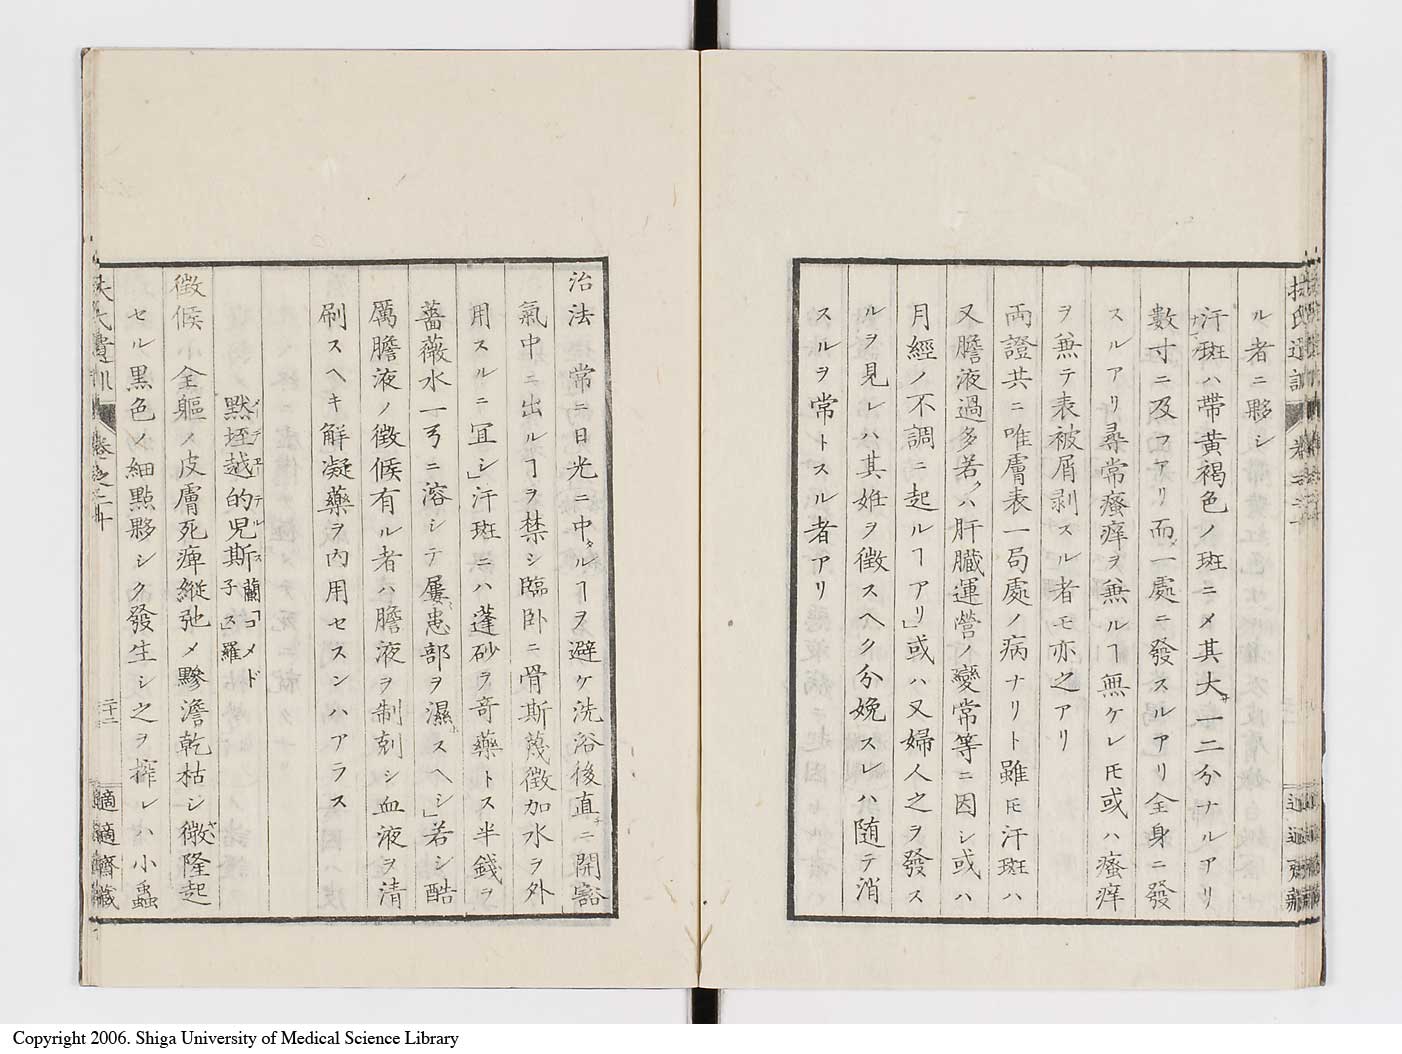 ル者ニ夥シ
汗斑ハ帯黄褐色ノ斑ニメ其大サ一二分ナルアリ
數寸ニ及フアリ而メ一處ニ發スルアリ全身ニ發
スルアリ尋常瘙痒ヲ無ルヿ無ケレ𪜈或ハ瘙痒
ヲ無テ表被屑剥スル者モ亦之アリ
両證共ニ唯膚表一局處ノ病ナリト雖𪜈汗斑ハ
又膽液過多若クハ肝臓運營ノ變常等ニ因シ或ハ
月經ノ不調ニ起ルヿアリ」或ハ又婦人之ヲ發ス
ルヲ見レハ其姙ヲ徴スヘク分娩スレハ随テ消
スルヲ常トスル者アリ
治法 常ニ日光ニ中タルヿヲ避ケ洗浴後直チニ開豁
氣中ニ出ルヿヲ禁シ臨卧ニ骨斯蔑徴加水ヲ外
用スルニ冝シ」汗斑ニハ蓬砂ヲ竒藥トス半錢ヲ
薔薇水一弓ニ溶シテ屢患部ヲ濕スヘシ」若シ酷
厲膽液ノ徴候有ル者ハ膽液ヲ制剋シ血液ヲ清
刷スヘキ解凝藥ヲ內用セスンハアラス
黙垤越的児斯 蘭「コメド子ス」羅
徴候 小全軀ノ皮膚死痺縦弛メ黲澹乾枯シ微隆起
セル黒色ノ細點夥シク發生シ之ヲ搾レハ小蟲
扶氏遺訓 卷之二十
二十二
適適齋藏
Copyright 2006. Shiga University of Medical Science Library